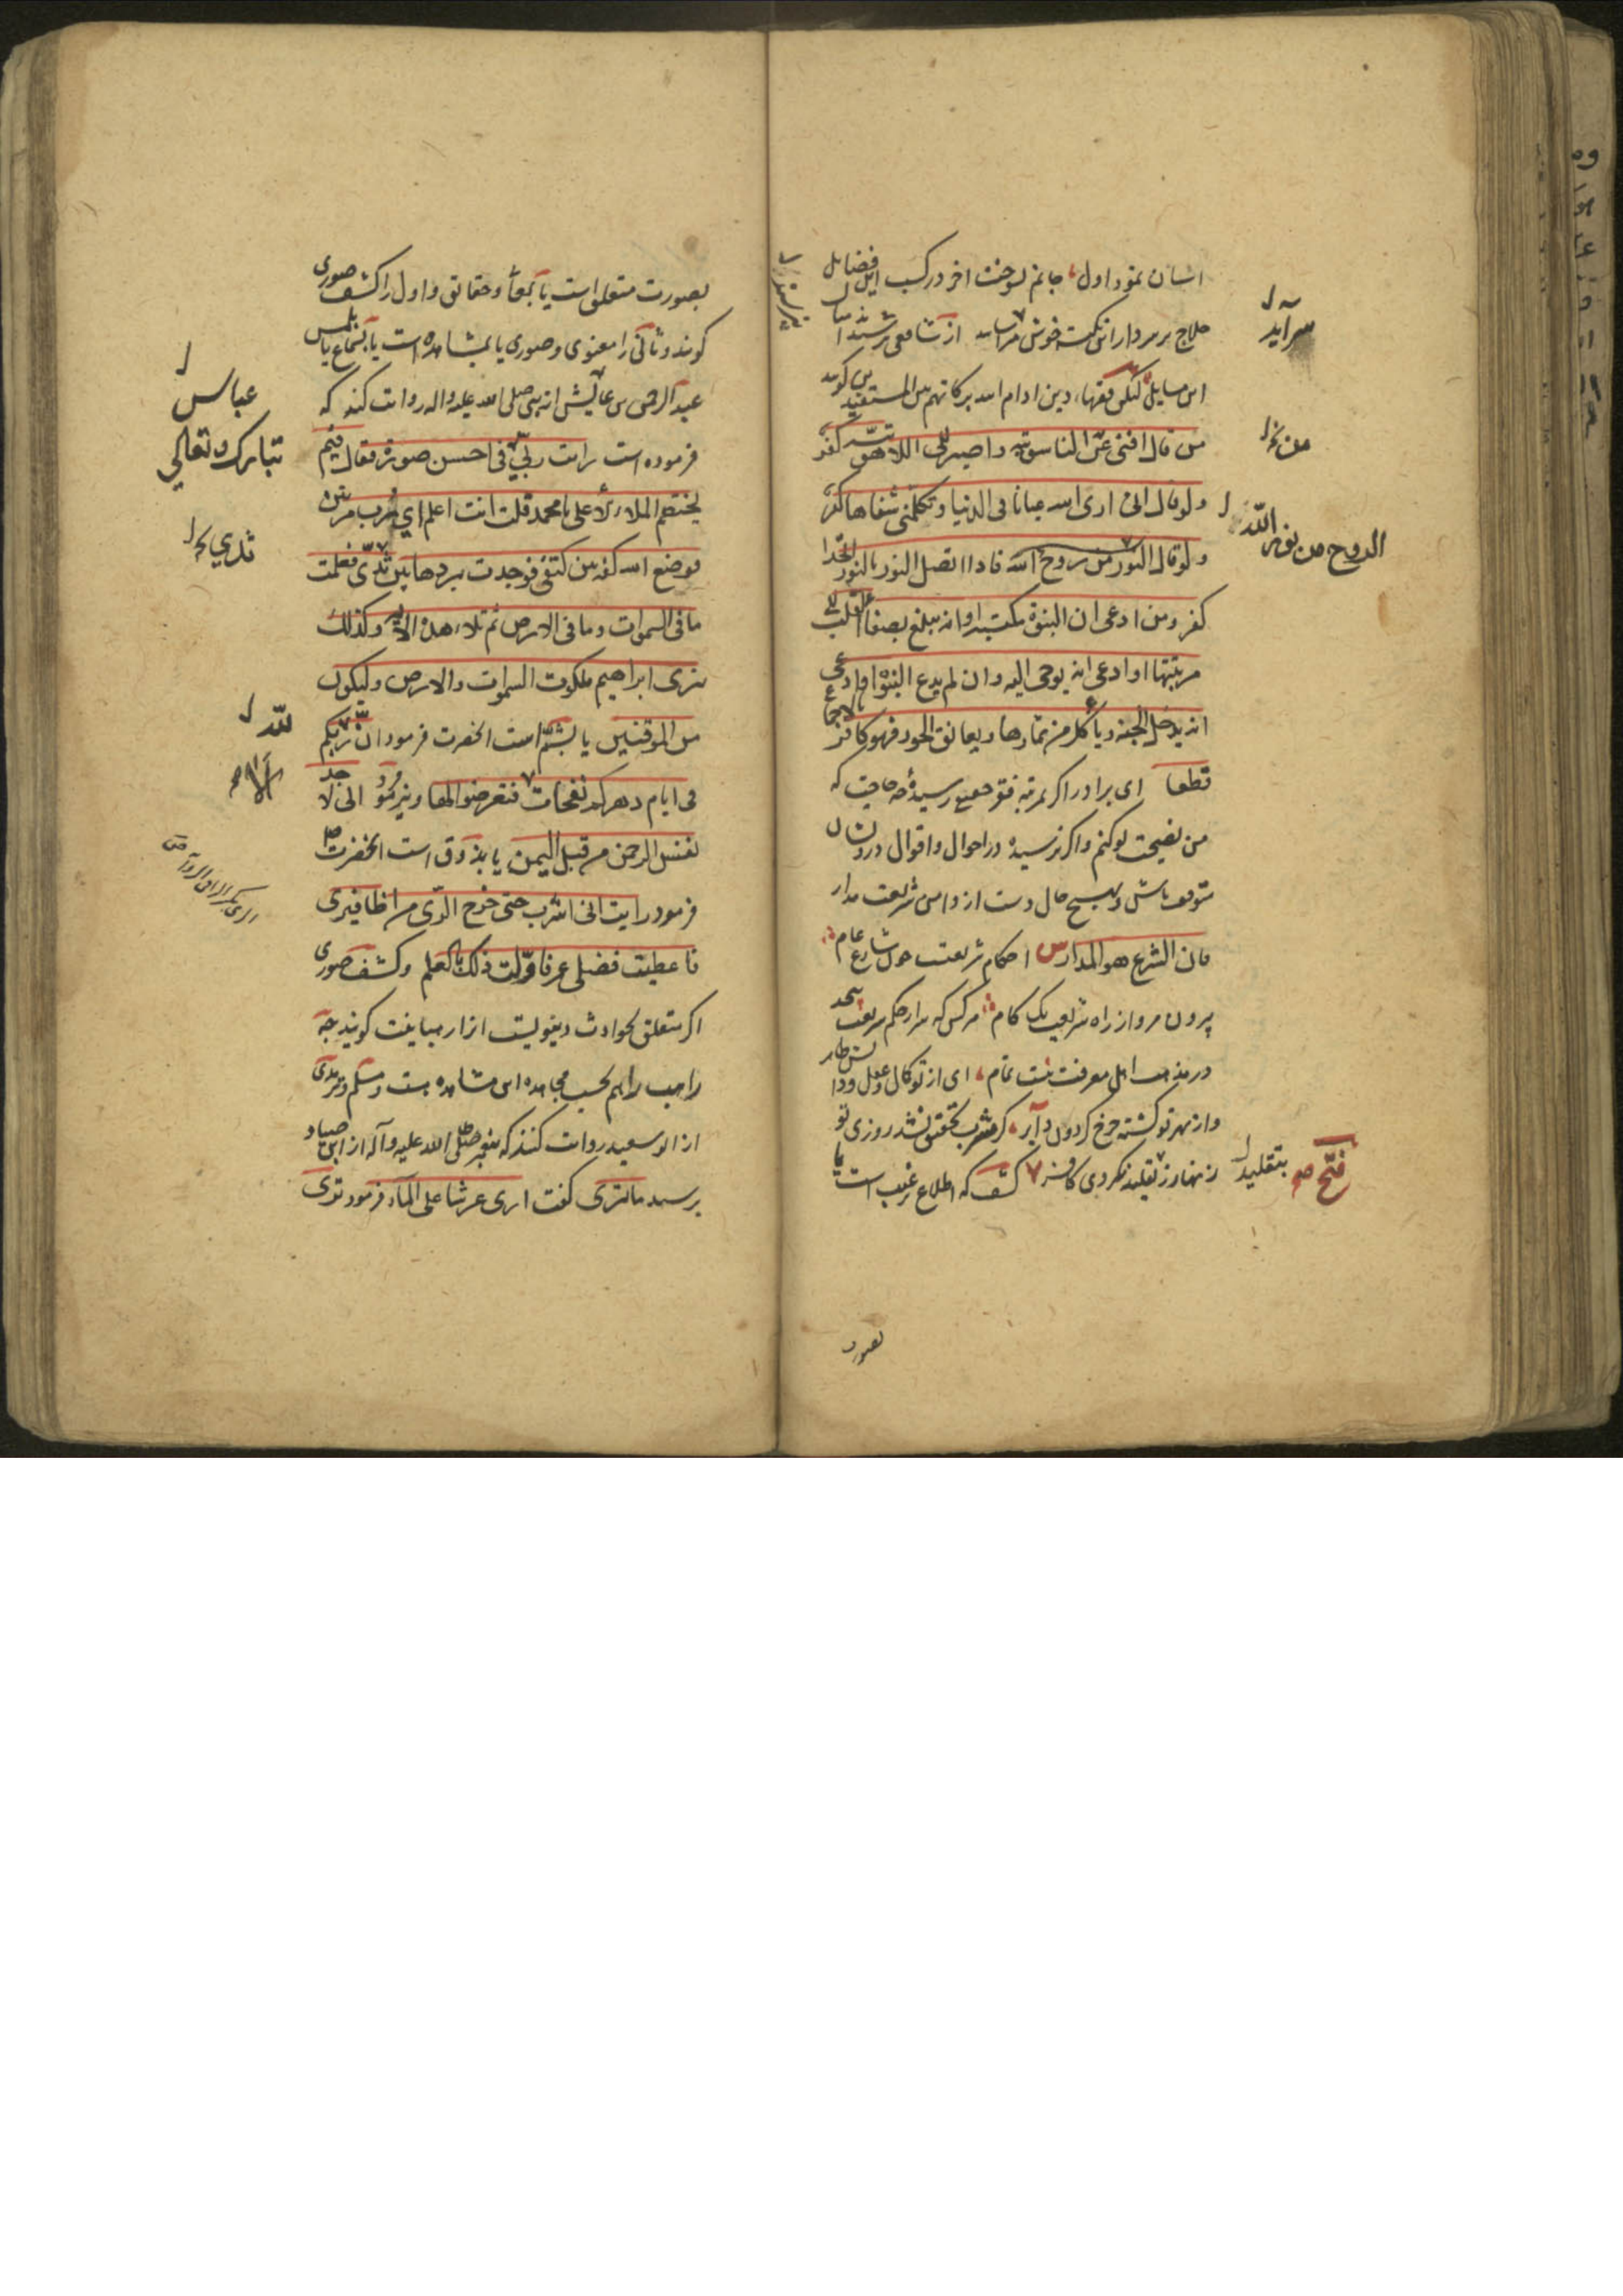 انسان نمود اول جانم بسوخت اخر در کسب این فضایل
حلاج بر سر دار این نکته خوش سراید از شافعی نپرسند امثال
این مسایل لیکن فقهاء دین ادام الله برکاتهم بین المستفیدین کویند
من قال افنی عن الناسوتیه واصیر الی اللاهوتیه کفر
ولو قال انی اری الله عیانا فی الدنیا وتکلمنی شفاها کفر
ولو قال النور من روح الله فاذا اتصل النور بالنور اتحدا
کفر ومن ادعی ان النبوة مکتسبة او انه یبلغ بصفاء القلب الی
مرتبتها او ادعی انه یوحی الیه وان لم یدع النبوة او ادعی
انه یدخل الجنة ویاکل من ثمارها ویعانق الحور فهو کافر بالاجماع
قطعا ای برادر اکر بمرتبه فقر حقیقی رسیدهٔ چه حاجت که
من نصیحت تو کنم واکر نرسیدهٔ در احوال واقوال درویشان
متوقف باش وبهیچ حال دست از دامن شریعت مدار
فان الشرع هو المدار س احکام شریعت چون شارع عام
بیرون مرو از راه شریعت یک کام هرکس که سر از حکم شریعت پیچد
در مذهب اهل معرفت نیست تمام ای از تو کمال وعقل ودانش ظاهر
واز بهر تو کشته چرخ کردون دایر کر مشرب تحقیق نشد روزی تو
زنهار ز تقلید نکردی کافر کشف که اطلاع بر غیب است یا
سرآید
من نخ
الروح من نور الله
بتقلید
فتح
بصور
بصورت متعلق است یا بمعانی وحقائق واول را کشف صوری
کویند وثانی را معنوی وصوری یا بمشاهده است یا بسماع یا بلمس
عبد الرحمن بن عایش از نبی صلی الله علیه واله روایت کند که
فرموده است رایت ربی فی احسن صورة فقال فیم
یختصم الملاء الاعلی یا محمد قلت انت اعلم ای رب مرتین
فوضع الله کفه بین کتفی فوجدت بردها بین ثدیی فعلمت
ما فی السموات وما فی الارض ثم تلا هذه الایة وکذلک
نری ابراهیم ملکوت السموات والارض ولیکون
من الموقنین یا بشم است انحضرت فرمود ان ربکم
فی ایام دهرکم نفحات فتعرضوا لها ونیز فرمود انی لاجد
نفس الرحمن من قبل الیمن یا بذوق است انحضرت
فرمود رایت انی اشرب حتی خرج الری من اظافیری
فاعطیت فضلی عمر فاولت ذلک بالعلم وکشف صوری
اکر متعلق بحوادث دنیویست انرا رهبانیت کویند چه
راهب را هم بحسب مجاهده این مشاهده هست ومسلم وترمذی
از ابو سعید روایت کنند که پیغمبر صلی الله علیه وآله از ابن صیاد
پرسید ما تری کفت اری عرشا علی الماء فرمود تری
عباس
تبارک وتعالی
ثدیي
لله
الا